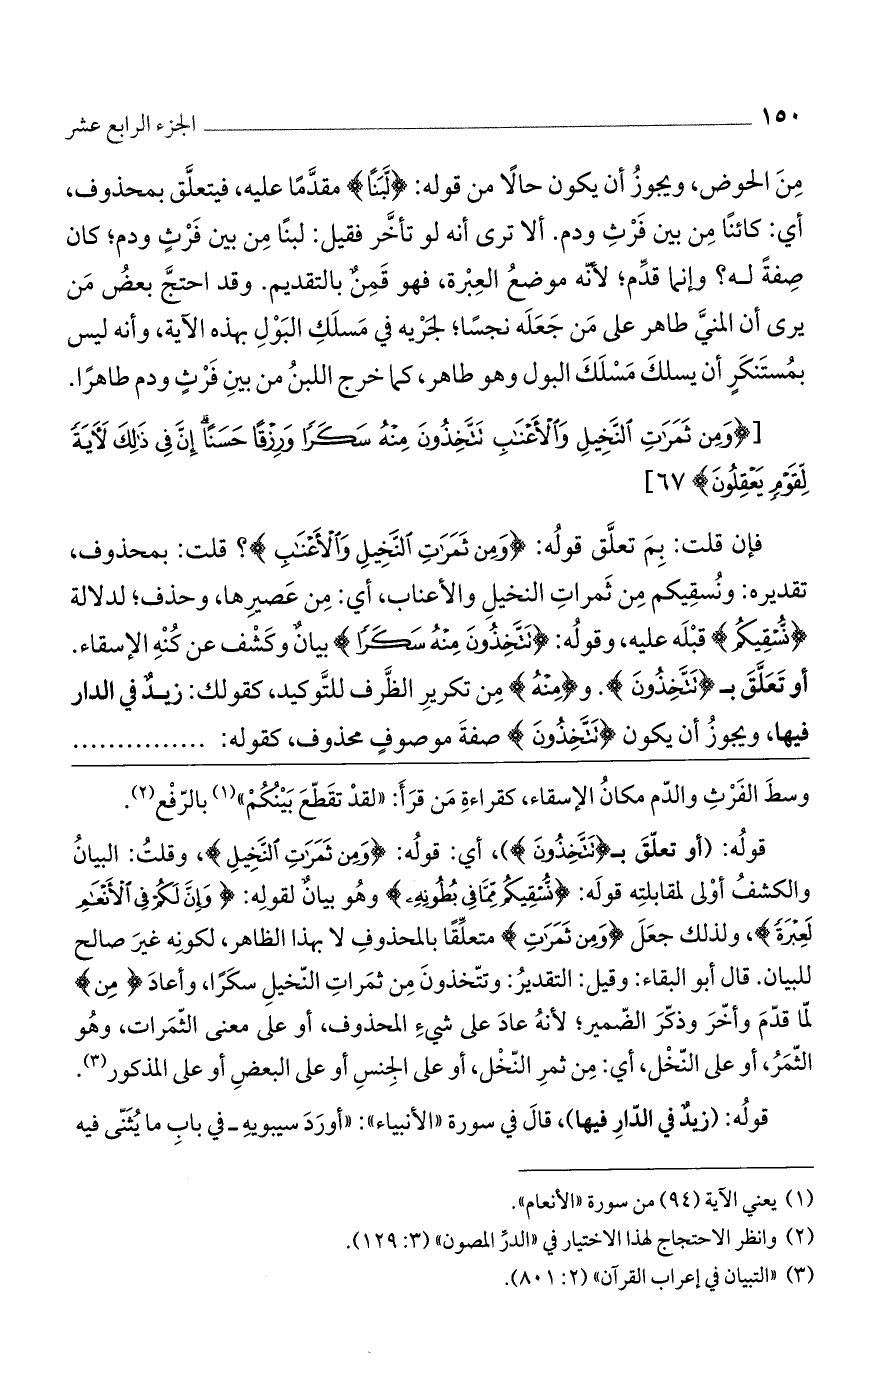 ١٥٠ الجزء الرابع عشر
مِنَ الحوض، ويجوزُ أن يكون حالًا من قوله: ﴿لَّبَنًا﴾ مقدَّمًا عليه، فيتعلَّق بمحذوف،
أي: كائنًا مِن بين فَرْثِ ودم. ألا ترى أنه لو تأخَّر فقيل: لبنًا مِن بين فَرْثٍ ودم؛ كان
صِفةً لـه؟ وإنما قدِّم؛ لأنّه موضعُ العِبْرة، فهو قَمِنٌ بالتقديم. وقد احتجَّ بعضُ مَن
يرى أن المنيَّ طاهر على مَن جَعَلَه نجسًا؛ لجَرْيه في مَسلَكِ البَوْلِ بهذه الآية، وأنه ليس
بمُستَنكَرٍ أن يسلكَ مَسْلَكَ البول وهو طاهر، كما خرج اللبنُ من بينِ فَرْثٍ ودم طاهرًا.
[﴿وَمِن ثَمَرَٰتِ ٱلنَّخِيلِ وَٱلْأَعْنَٰبِ تَتَّخِذُونَ مِنْهُ سَكَرًا وَرِزْقًا حَسَنًا ۗ إِنَّ فِى ذَٰلِكَ لَأَيَةً
لِّقَوْمٍ يَعْقِلُونَ﴾ ٦٧]
فإن قلت: بِمَ تعلَّق قولُه: ﴿وَمِن ثَمَرَٰتِ ٱلنَّخِيلِ وَٱلْأَعْنَٰبِ﴾؟ قلت: بمحذوف،
تقديره: ونُسقِيكم مِن ثَمراتِ النخيلِ والأعناب، أي: مِن عَصيرِها، وحذف؛ لدلالة
﴿نُّسْقِيكُم﴾ قبْلَه عليه، وقوله: ﴿تَتَّخِذُونَ مِنْهُ سَكَرًا﴾ بيانٌ وكَشْف عن كُنْهِ الإسقاء.
أو تَعَلَّقَ بـ﴿تَتَّخِذُونَ﴾. و﴿مِنْهُ﴾ مِن تكريرِ الظَّرف للتَّوكيد، كقولك: زيـدٌ في الدار
فيها، ويجوزُ أن يكون ﴿تَتَّخِذُونَ﴾ صفةَ موصوفٍ محذوف، كقوله: ...............
وسطَ الفَرْثِ والدّم مكانُ الإسقاء، كقراءةِ مَن قرَأَ: «لقدْ تقَطّعَ بَيْنُكُمْ»(١) بالرّفْع(٢).
قولُه: (أو تعلّقَ بـ﴿تَتَّخِذُونَ﴾)، أي: قولُه: ﴿وَمِن ثَمَرَٰتِ ٱلنَّخِيلِ﴾، وقلتُ: البيانُ
والكشفُ أوْلى لمقابلتِه قولَه: ﴿نُّسْقِيكُم مِّمَّا فِى بُطُونِهِۦ﴾ وهُو بيانٌ لقولِه: ﴿وَإِنَّ لَكُمْ فِى ٱلْأَنْعَٰمِ
لَعِبْرَةً﴾، ولذلك جعلَ ﴿وَمِن ثَمَرَٰتِ﴾ متعلِّقًا بالمحذوفِ لا بهذا الظاهر، لكونِه غيرَ صالح
للبيان. قال أبو البقاء: وقيل: التقديرُ: وتتّخذونَ مِن ثمراتِ النّخيلِ سكَرًا، وأعادَ ﴿مِن﴾
لمّا قدّمَ وأخّرَ وذكّرَ الضّمير؛ لأنهُ عادَ على شيءِ المحذوف، أو على معنى الثّمرات، وهُو
الثّمَرُ، أو على النّخْل، أي: مِن ثمرِ النّخْل، أو على الجِنسِ أو على البعضِ أو على المذكور(٣).
قولُه: (زيدٌ في الدّارِ فيها)، قالَ في سورة «الأنبياء»: «أورَدَ سيبويهِ ـ في بابِ ما يُثَنّى فيه
(١) يعني الآية (٩٤) من سورة «الأنعام».
(٢) وانظر الاحتجاج لهذا الاختيار في «الدرّ المصون» (٣: ١٢٩).
(٣) «التبيان في إعراب القرآن» (٢: ٨٠١).